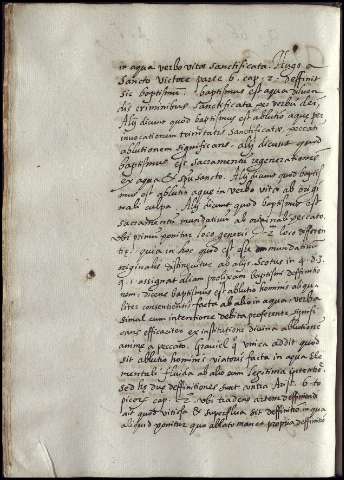 in aqua verbo vitæ sanctificata. Hugo a
Sancto Victore parte 6. cap. 2. deffinit
sic baptismū. baptismus est aqua diluen
dis criminibus sanctificata per verbū dei,
Alij dicunt quod baptismus est ablutio aque per
invocationem trinitatis sanctificatæ peccati
ablutionem significans. alij dicunt quod
baptismus est sacramentū regenerationis
ex aqua & spū sancto. Alij dicunt quod baptis
mus est ablutio aque in verbo vitæ ab origi
nali culpa. Alij dicunt quod baptismus est
sacramentū mundativū ab originali peccato.
ubi primū ponitur loco generis 2. loco differen
tiæ, quia in hoc quod est esse mundativū
originalis distinguitur ab alijs. Scotus in 4. d. 3.
q. 1. assignat aliam prolixam baptismi deffinitio
nem, dicens baptismus est ablutio hominis aliqua
liter consentientis facta ab alio in aqua, verba
simul cum intentione debita proferente signifi
cans efficaciter ex institutione divina ablutionē
animæ a peccato. Gabriel q. unica addit quod
sit ablutio hominis viatoris facta in aqua ele
mentali fluida ab alio cum legitima intentiōe
sed hæ duæ deffinitiones sunt contra Arist. 6. to
picorū cap. 2. ubi tradens artem deffiniendi
ait quod vitiosa & superflua sit deffinitio, in qua
aliquid ponitur quo ablato manet propria deffinitio